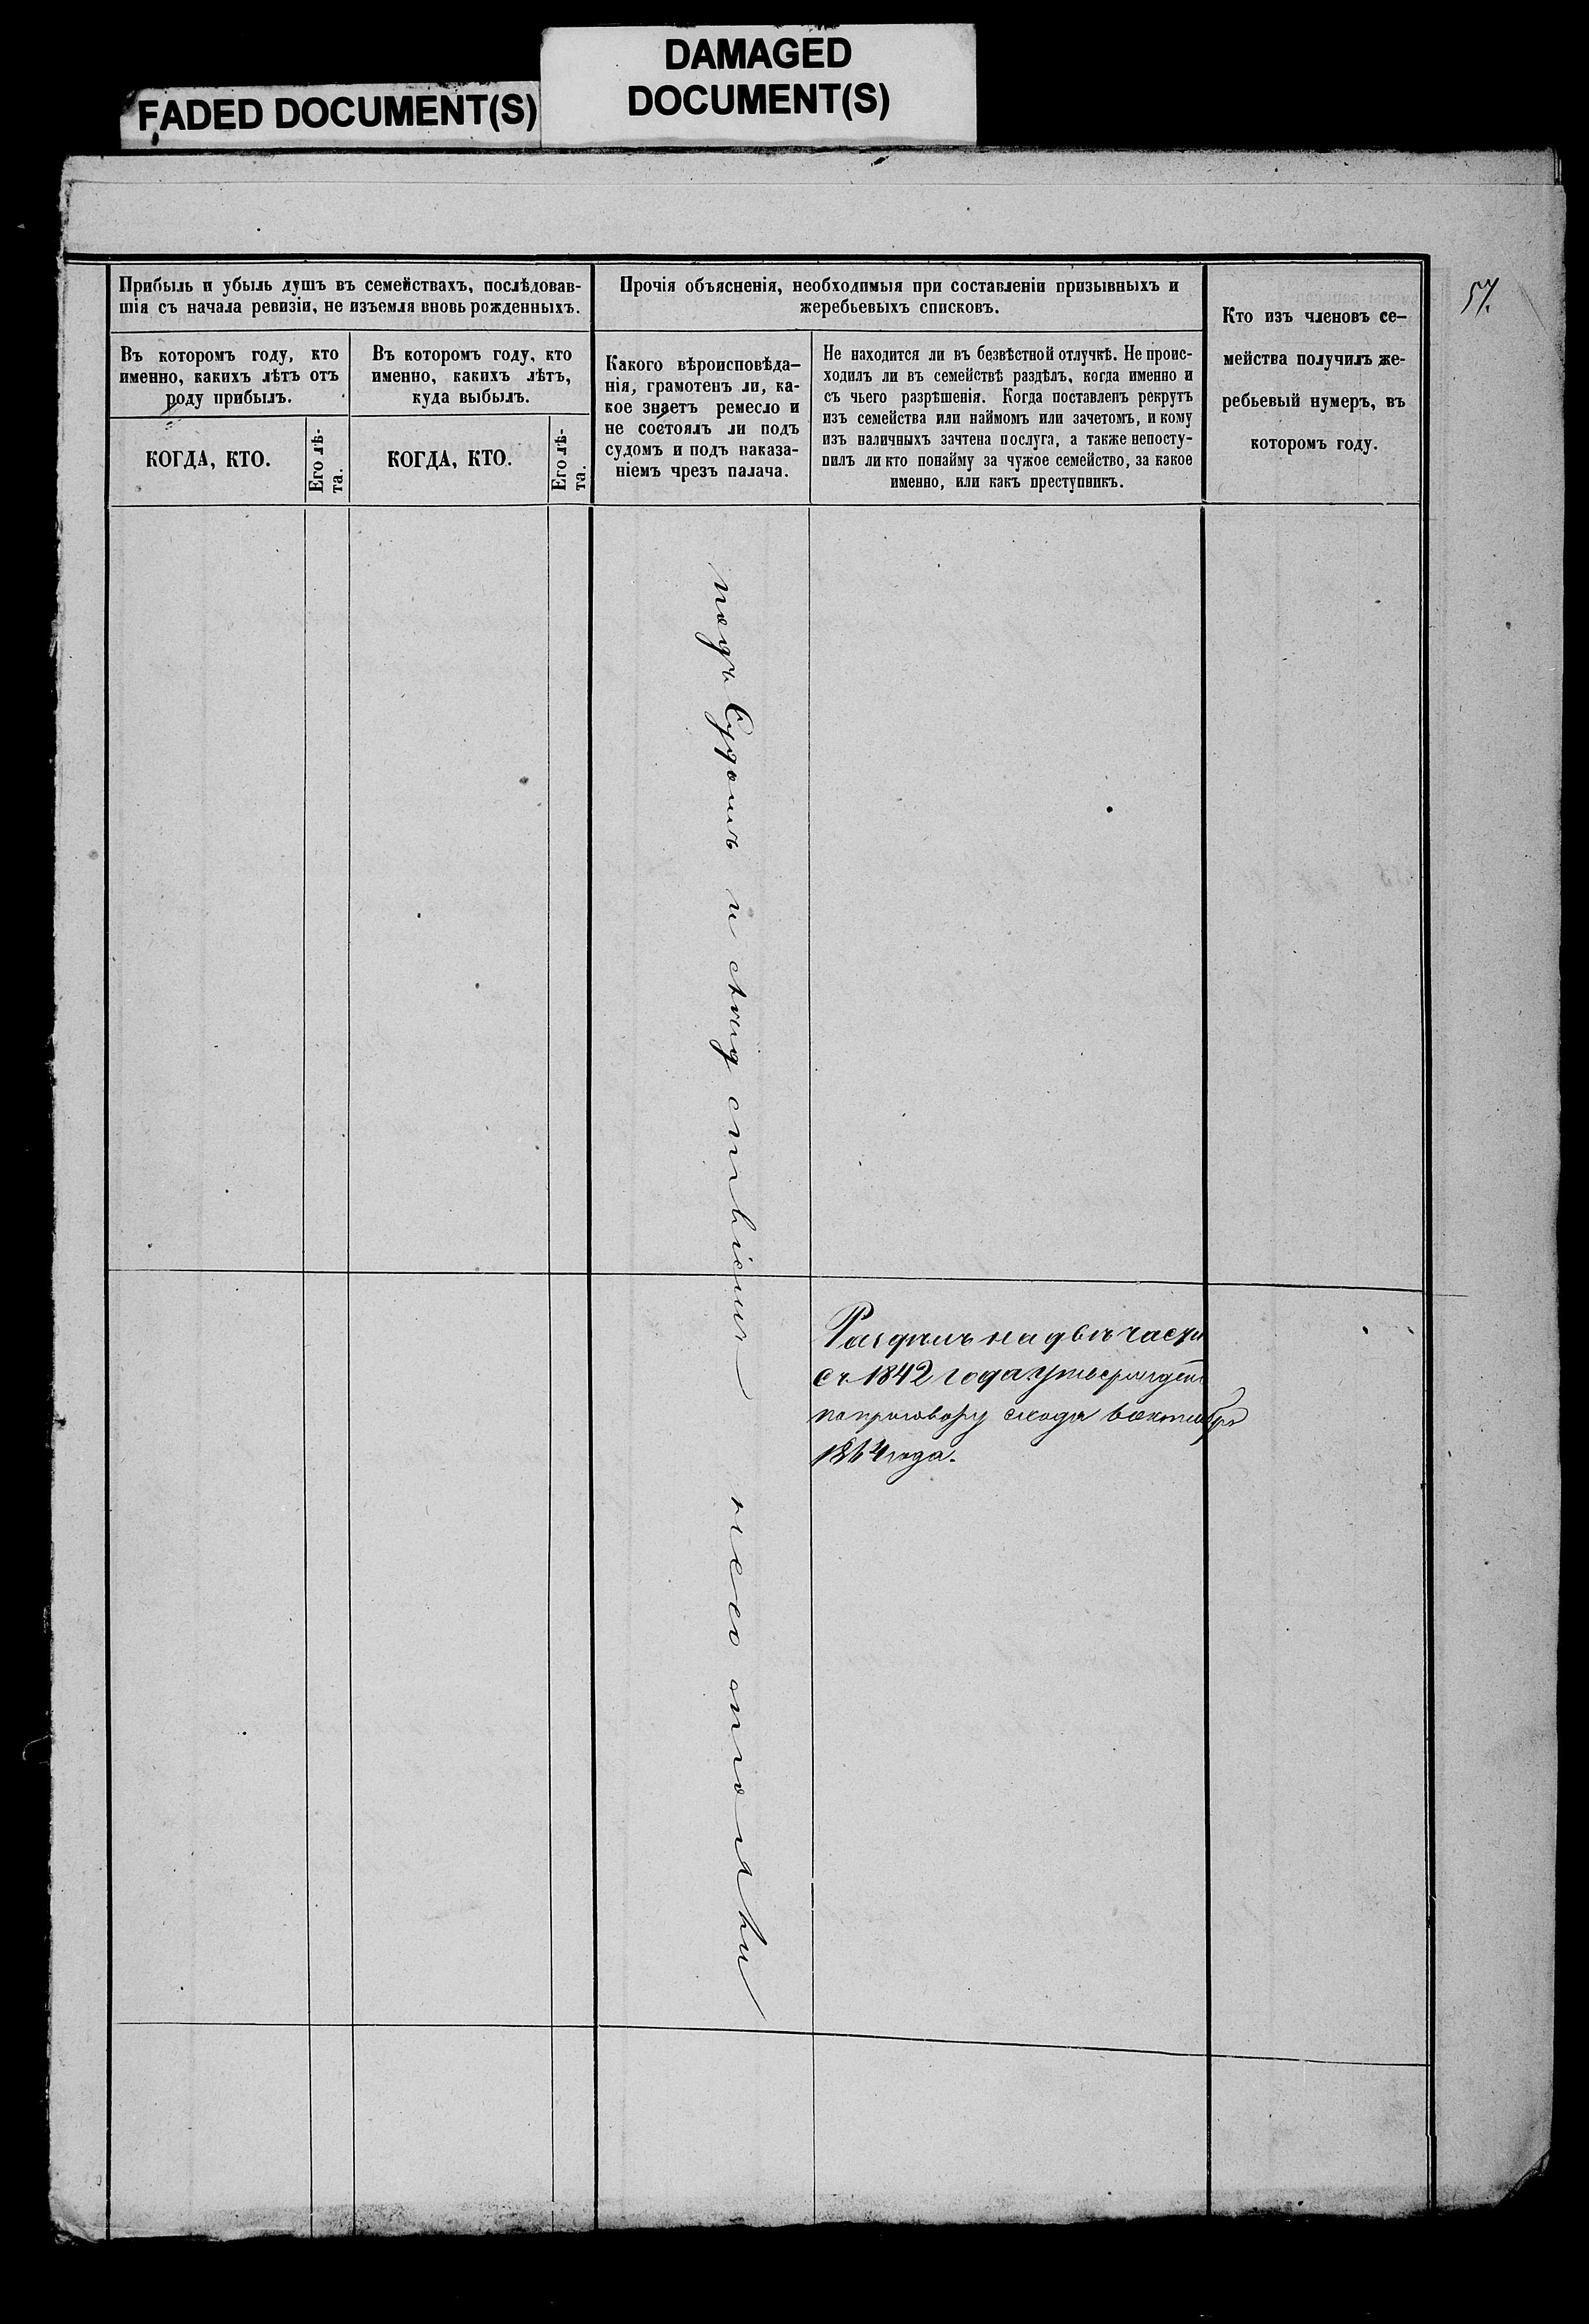 FADED DOCUMENT(S)
DAMAGED
DOCUMENT(S)
57.
Прибыль и убыль душъ въ семействахъ, послѣдовав-
шія съ начала ревизіи, не изъемля вновь рожденныхъ.
Въ которомъ году, кто
именно, какихъ лѣтъ отъ
роду прибылъ.
КОГДА, КТО.
Его лѣ-
та.
Въ которомъ году, кто
именно, какихъ лѣтъ,
куда выбылъ.
КОГДА, КТО.
Его лѣ-
та.
Прочія объясненія, необходимыя при составленіи призывныхъ и
жеребьевыхъ списковъ.
Какого вѣроисповѣда-
нія, грамотенъ ли, ка-
кое знаетъ ремесло и
не состоялъ ли подъ
судомъ и подъ наказа-
ніемъ чрезъ палача.
Не находится ли въ безвѣстной отлучкѣ. Не проис-
ходилъ ли въ семействѣ раздѣлъ, когда именно и
съ чьего разрѣшенія. Когда поставленъ рекрутъ
изъ семейства или наймомъ или зачетомъ, и кому
изъ наличныхъ зачтена послуга, а также непосту-
пилъ ли кто понайму за чужое семейство, за какое
именно, или какъ преступникъ.
Кто изъ членовъ се-
мейства получилъ же-
ребьевый нумеръ, въ
которомъ году.
подъ Судомъ и слѣдствіемъ несостояли
Раздѣлъ на двѣ части
съ 1842 года утвержденъ
по приговору схода въ октябрѣ
1864 года.